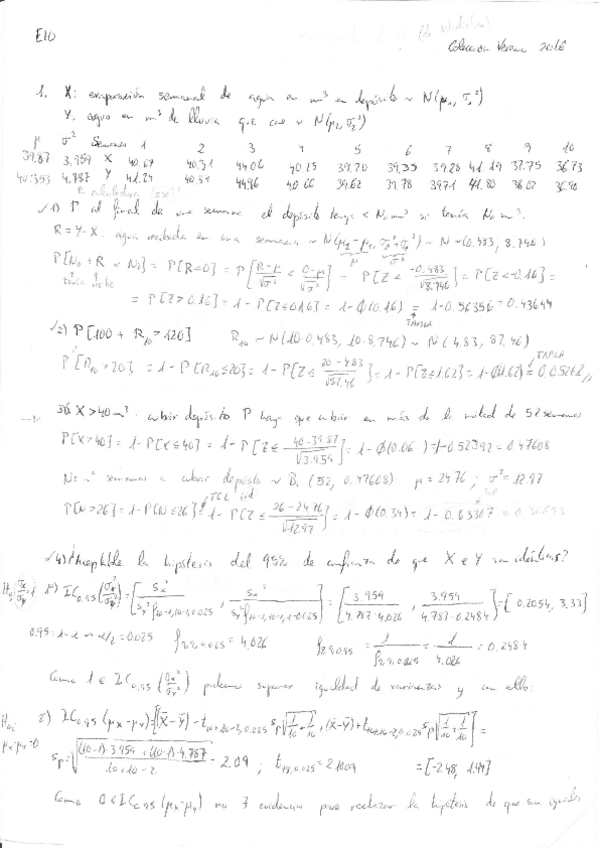 E10
Colección Verano 2016
1. X: evaporación semanal de agua en m³ en depósito ~ N(μ₁, σ₁²)
Y: agua en m³ de lluvia que cae ~ N(μ₂, σ₂²)
μ σ² Semana 1 2 3 4 5 6 7 8 9 10
39.87 3.959 X 40.67 40.31 44.06 40.15 39.70 39.35 39.28 41.19 37.75 36.73
40.353 4.787 Y 41.24 39.62 39.71 41.80
1) P al final de una semana el depósito tenga < N₀ m³ si tenía N₀ m³.
R = Y-X: agua recibida en una semana ~ N(μ₂-μ₁, σ₂²+σ₁²) ~ N(0.483, 8.746)
P[N₀ + R < N₀] = P[R<0] = P[(R-μ)/√σ² < (0-μ)/√σ²] = P[Z < -0.483/√8.746] = P[Z<-0.16] =
= P[Z>0.16] = 1-P[Z≤0.16] = 1-Φ(0.16) = 1-0.56356 = 0.43644
TABLA
2) P[100 + R₁₀ > 120] R₁₀ ~ N(10·0.483, 10·8.746) ~ N(4.83, 87.46)
P[R₁₀>20] = 1-P[R₁₀≤20] = 1-P[Z ≤ (20-4.83)/√87.46] = 1-P[Z≤1.62] = 1-Φ(1.62) = 0.0526
TABLA
Si X>40m³ cubrir depósito P haya que cubrir en más de la mitad de 52 semanas
P[X>40] = 1-P[X≤40] = 1-P[Z≤ (40-39.87)/√3.959] = 1-Φ(0.06) = 1-0.52392 = 0.47608
N: nº semanas a cubrir depósito ~ B(52, 0.47608) μ = 24.76; σ² = 12.97
P[N>26] = 1-P[N≤26] = 1-P[Z ≤ (26-24.76)/√12.97] = 1-Φ(0.34) = 1-0.63307 = 0.36693
TCL
4) ¿Aceptable la hipótesis del 95% de confianza de que X e Y son idénticas?
H₀: σx²/σy² = 1 1º) IC₀.₉₅(σx²/σy²) = [Sx²/(Sy² f₁₀₋₁,₁₀₋₁,₀.₀₂₅), Sx²/(Sy² f₁₀₋₁,₁₀₋₁,₁₋₀.₀₂₅)] = [3.959/(4.787·4.026), 3.959/(4.787·0.2484)] = [0.2054, 3.33]
0.95 = 1-α → α/2 = 0.025 f₉,₉,₀.₀₂₅ = 4.026 = 1/f₉,₉,₀.₀₂₅ = 1/4.026 = 0.2484
Como 1 ∈ IC₀.₉₅(σx²/σy²) podemos suponer igualdad de varianzas y con ello:
H₀: μx-μy=0 2) IC₀.₉₅(μx-μy) = [(X̄-Ȳ) - t₁₀₊₁₀₋₂,₀.₀₂₅ Sp√(1/10+1/10), (X̄-Ȳ) + t₁₀₊₁₀₋₂,₀.₀₂₅ Sp√(1/10+1/10)] =
Sp = √(((10-1)·3.959 + (10-1)·4.787)/(10+10-2)) = 2.09; t₁₈,₀.₀₂₅ = 2.1009 = [-2.48, 1.44]
Como 0 ∈ IC₀.₉₅(μx-μy) no ∃ evidencias para rechazar la hipótesis de que son iguales